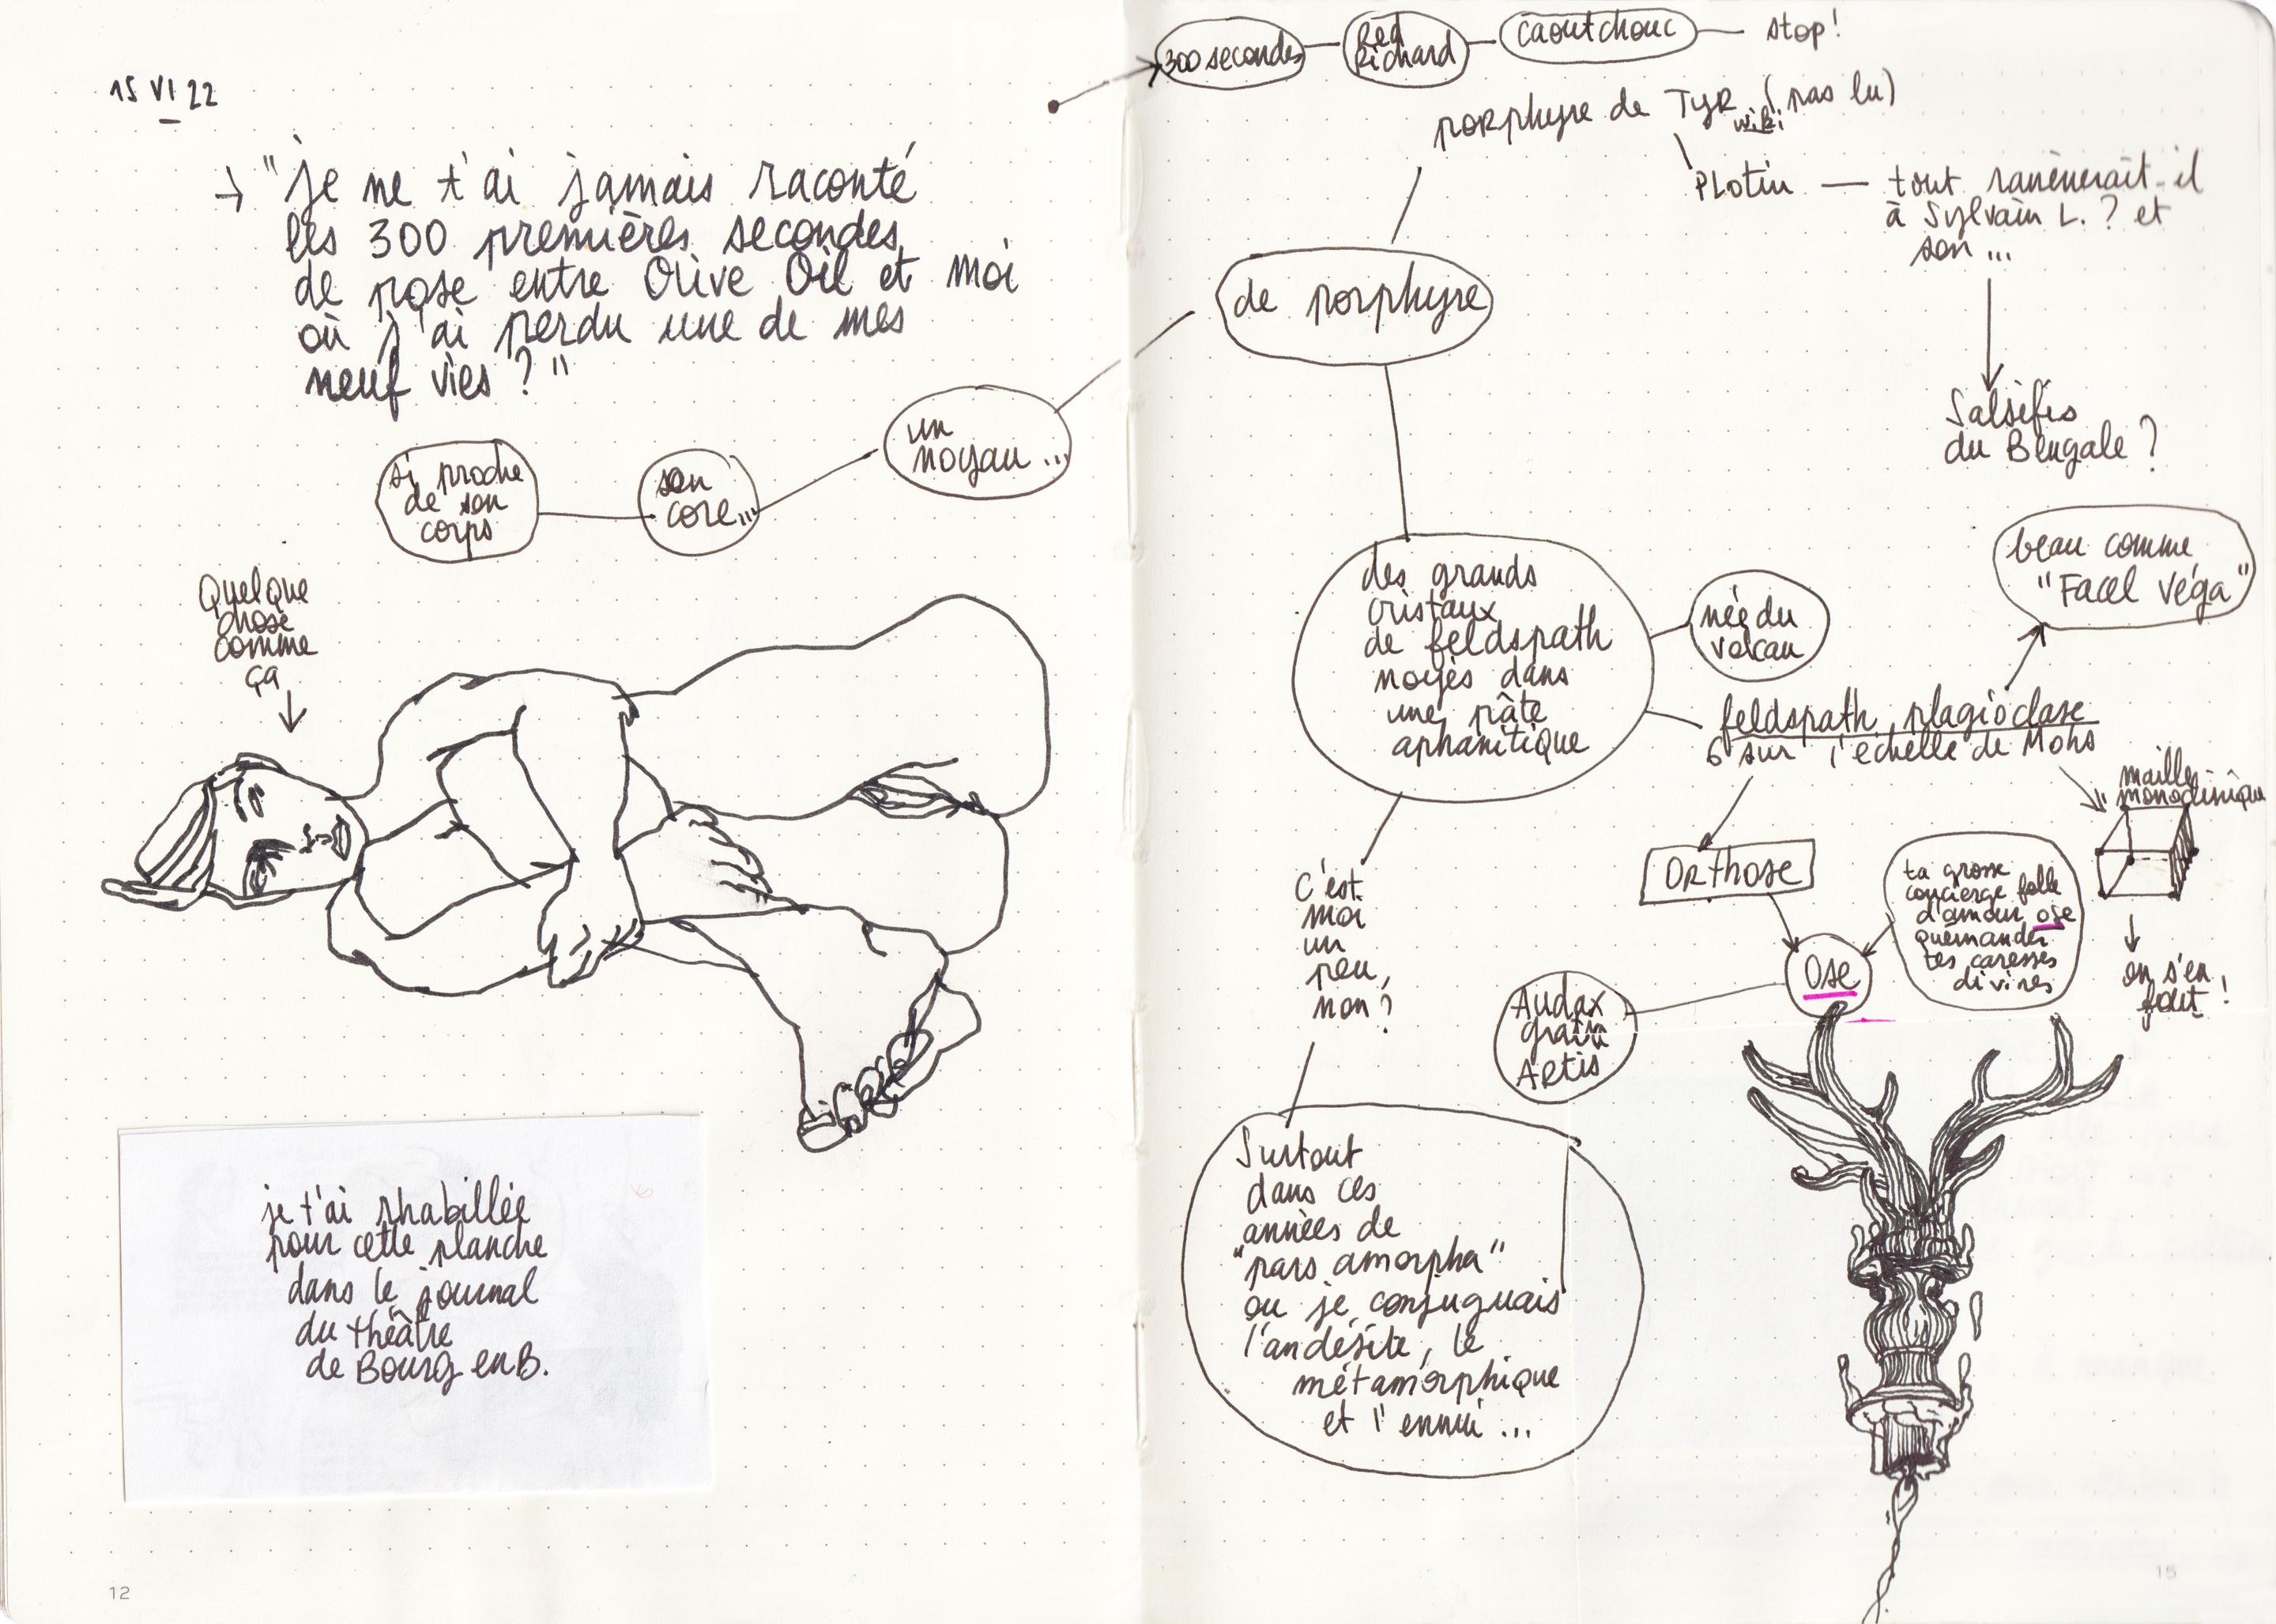 15 VI 22
→ "je ne t'ai jamais raconté
les 300 premières secondes
de pose entre Olive Oil et moi
où j'ai perdu une de mes
neuf vies ?"
si proche
de son
corps
son
core...
un
noyau...
Quelque
chose
comme
ça
je t'ai rhabillée
pour cette planche
dans le journal
du théâtre
de Bourg en B.
12
300 secondes
Red
Richard
caoutchouc
stop!
porphyre de Tyr (pas lu)
wiki
Plotin — tout ramènerait-il
à Sylvain L. ? et
son ...
Salsifis
du Bengale ?
de porphyre
des grands
cristaux
de feldspath
noyés dans
une pâte
aphanitique
née du
volcan
beau comme
"Facel Véga"
feldspath plagioclase
6 sur l'échelle de Mohs
maille
monoclinique
on s'en
fout !
Orthose
Ose
ta grosse
concierge folle
d'amour ose
quémander
tes caresses
divines
Audax
Artis
C'est
moi
un
peu,
non ?
Surtout
dans ces
années de
"pars amorpha"
ou je conjuguais
l'andésite, le
métamorphique
et l'ennui ...
15